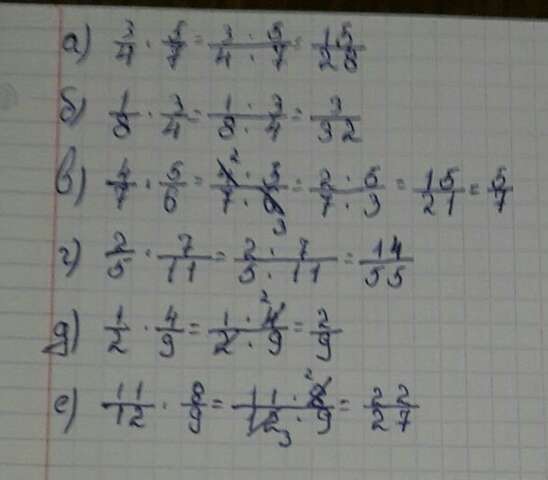 а) 3/4 · 5/7 = 3 · 5/4 · 7 = 15/28
б) 1/8 · 3/4 = 1 · 3/8 · 4 = 3/32
в) 4/7 · 5/6 = 4 2 · 5/7 · 6 3 = 2 · 5/7 · 3 = 15/21 = 5/7
г) 2/5 · 7/11 = 2 · 7/5 · 11 = 14/55
д) 1/2 · 4/9 = 1 · 4 2/2 · 9 = 2/9
е) 11/12 · 8/9 = 11 · 8 2/12 3 · 9 = 22/27